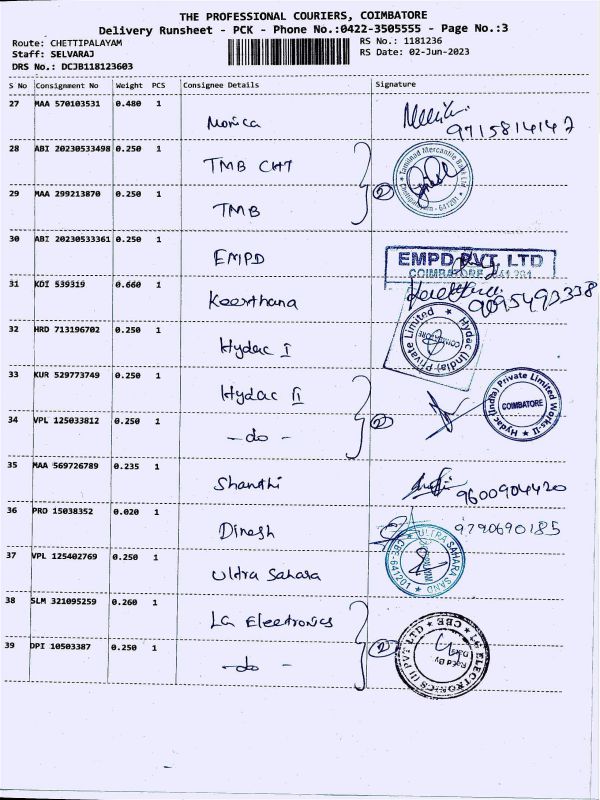 THE PROFESSIONAL COURIERS, COIMBATORE
Delivery Runsheet - PCK - Phone No.:0422-3505555 - Page No.:3
Route: CHETTIPALAYAM
Staff: SELVARAJ
DRS No.: DCJB118123603
RS No.: 1181236
RS Date: 02-Jun-2023
S No Consignment No Weight PCS Consignee Details Signature
27 MAA 570103531 0.480 1 Monica
9715814142
28 ABI 20230533498 0.250 1 TMB CHT
Tamilnad Mercantile Bank Ltd
Chettipalayam - 641201
29 MAA 299213870 0.250 1 TMB
2
30 ABI 20230533361 0.250 1 EMPD
EMPD PVT. LTD
COIMBATORE 641 201
31 KDI 539319 0.660 1 Keerthana
9095493338
32 HRD 713196702 0.250 1 Hydac I
Hydac (India) Private Limited
COIMBATORE
33 KUR 529773749 0.250 1 Hydac II
Hydac (India) Private Limited Works-II
COIMBATORE
34 VPL 125033812 0.250 1 - do -
2
35 MAA 569726789 0.235 1 Shanthi
9600904420
36 PRD 15038352 0.020 1 Dinesh
9790690185
37 VPL 125402769 0.250 1 Ultra Sahara
ULTRA SAHARA SAND
CBE-641201
38 SLM 321095259 0.260 1 LG Electronics
39 DPI 10503387 0.250 1 - do -
2
ELECTRONICS (I) PVT LTD CBE